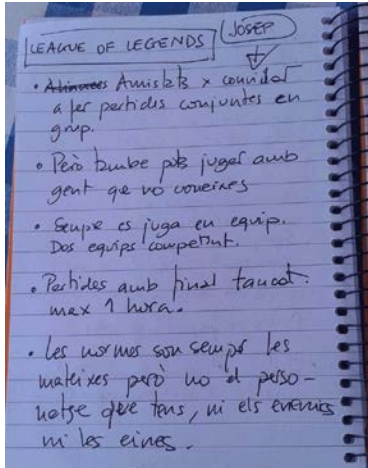 LEAGUE OF LEGENDS
JOSEP
• Aliances Amistats x convidar
a fer partides conjuntes en
grup.
• Però tambe pots jugar amb
gent que no coneixes
• Sempre es juga en equip.
Dos equips competint.
• Partides amb final tancat.
max 1 hora.
• Les normes son sempre les
mateixes però no el perso-
natge que tens, ni els enemics
ni les eines.